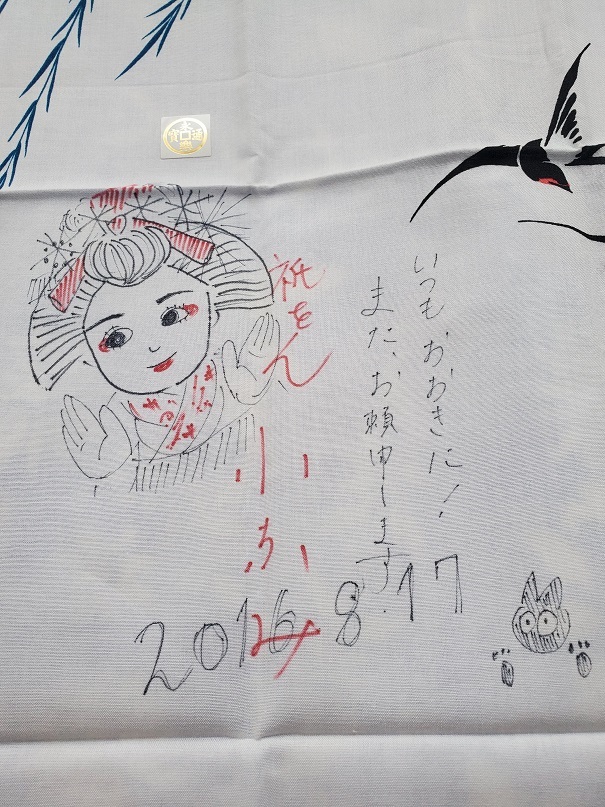 いつもおおきに!
また、お頼申します
祇をん
小ふみ
2016 8.17